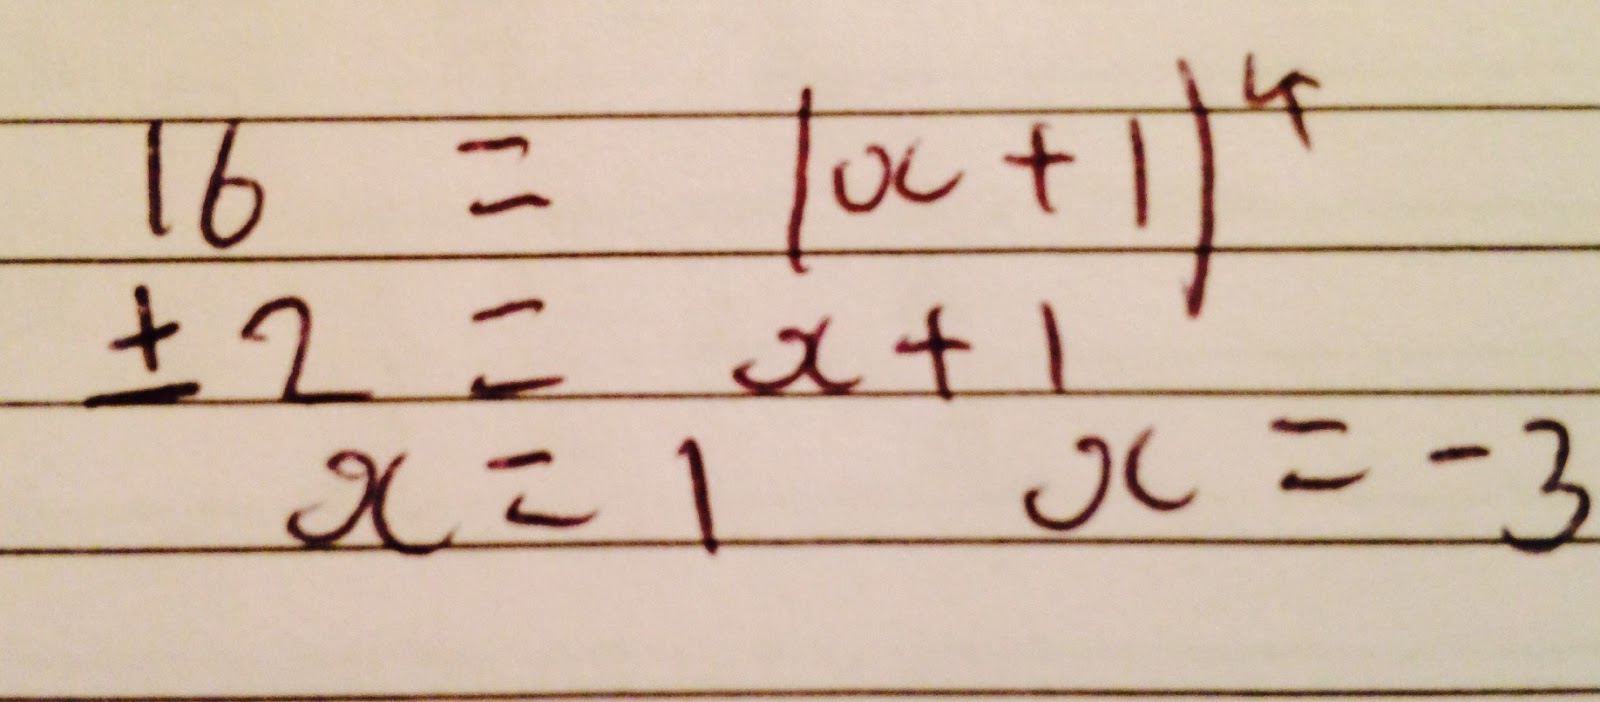 16 = |x+1|⁴
± 2 = x+1
x = 1 x = -3